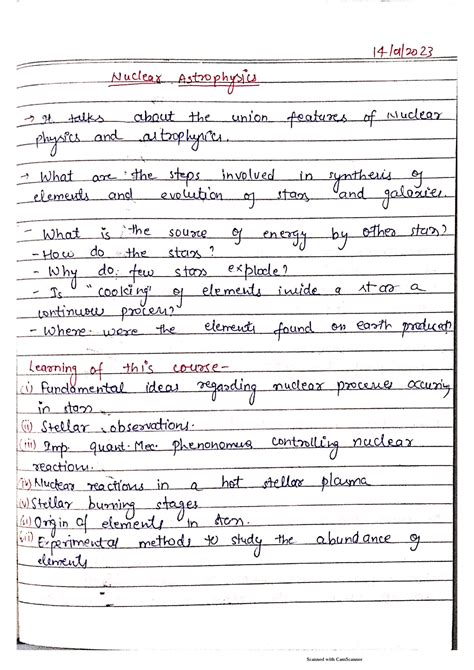 14/9/2023
Nuclear Astrophysics
→ It talks about the union features of Nuclear
physics and astrophysics.
→ What are the steps involved in synthesis of
elements and evolution of stars and galaxies.
- What is the source of energy by other stars?
- How do the stars?
- Why do few stars explode?
- Is "cooking" of elements inside a star a
continuous process?
- Where were the elements found on earth produced
Learning of this course-
(i) Fundamental ideas regarding nuclear processes occuring
in stars
(ii) Stellar observations.
(iii) Imp. quant. Mec. phenonomus controlling nuclear
reactions.
(iv) Nuclear reactions in a hot stellar plasma
(v) Stellar burning stages
(vi) Origin of elements in stars.
(vii) Experimental methods to study the abundance of
elements
Scanned with CamScanner